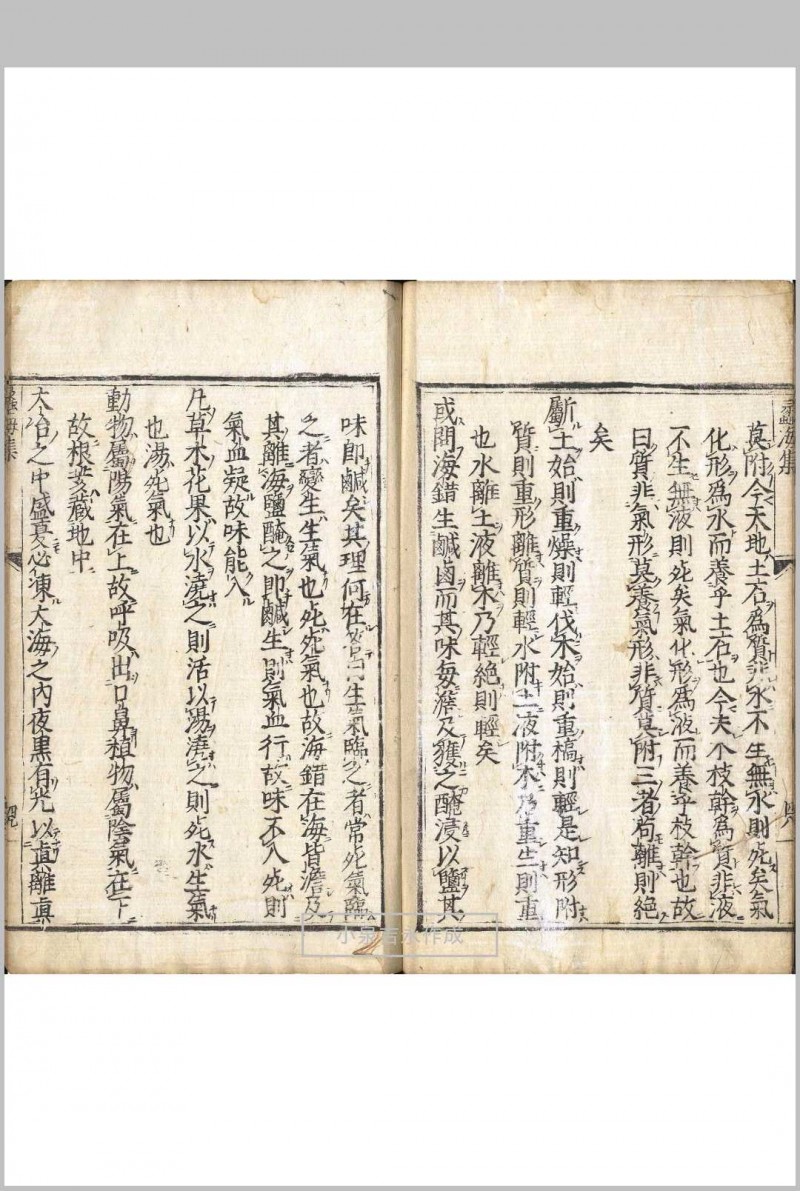 蠡海集
莫附今天地土石為質非水不生無水則死矣氣
化形為水而養乎土石也今夫木枝幹為質非液
不生無液則死矣氣化形為液而養乎枝幹也故
曰質非氣形莫養氣形非質莫附三者苟離則絕
矣
斸土始則重燥則輕伐木始則重槁則輕是知形附
質則重形離質則輕水附土液附木乃重生則重
也水離土液離木乃輕絕則輕矣
或問海錯生鹹鹵而其味每澹及獲之醃浸以鹽其
味即鹹矣其理何在曰生氣臨之者常死氣臨
之者變生生氣也死死氣也故海錯在海皆澹及
其離海鹽醃之即鹹生則氣血行故味不入死則
氣血凝故味能入
凡草木花果以水澆之則活以湯澆之則死水生氣
也湯死氣也
動物屬陽氣在上故呼吸出口鼻植物屬陰氣在下
故根荄藏地中
大冶之中盛夏必凍大海之內夜黑有光以真離真
蠡海集
小泉吉永作成